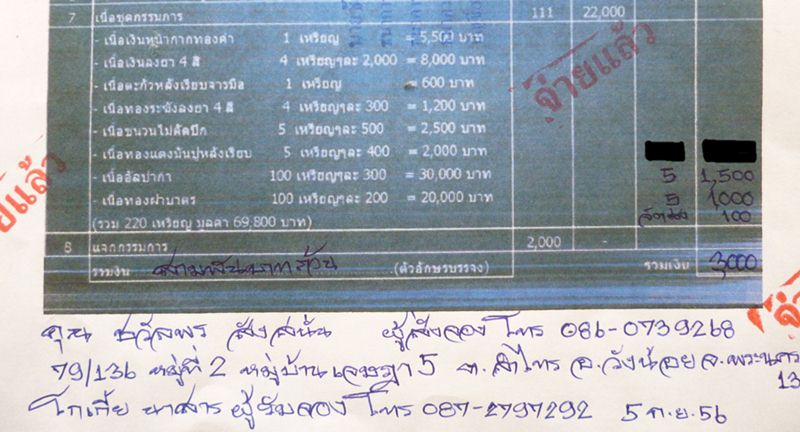 7 เนื้อชุดกรรมการ 111 22,000
- เนื้อเงินหน้ากากทองคำ 1 เหรียญ = 5,500 บาท
- เนื้อเงินลงยา 4 สี 4 เหรียญๆละ 2,000 = 8,000 บาท
- เนื้อตะกั่วหลังเรียบจารมือ 1 เหรียญ = 600 บาท
- เนื้อทองระฆังลงยา 4 สี 4 เหรียญๆละ 300 = 1,200 บาท
- เนื้อชนวนไม่ตัดปีก 5 เหรียญๆละ 500 = 2,500 บาท
- เนื้อทองแดงมันปูหลังเรียบ 5 เหรียญๆละ 400 = 2,000 บาท
- เนื้ออัลปาก้า 100 เหรียญๆละ 300 = 30,000 บาท 5 1,500
- เนื้อทองฝาบาตร 100 เหรียญๆละ 200 = 20,000 บาท 5 1,000
(รวม 220 เหรียญ มูลค่า 69,800 บาท) จัดส่ง 100
8 แจกกรรมการ 2,000 -
รวมเงิน สามพันบาทถ้วน (ตัวอักษรบรรจง) รวมเงิน 3,000
จ่ายแล้ว
คุณ ชวัลพร สังสนั่น ผู้สั่งจอง โทร 086-0739268
79/136 หมู่ที่ 2 หมู่บ้านเจษฎา 5 ต.ลำไทร อ.วังน้อย จ.พระนคร
13
โกเกี้ย นาสาร ผู้รับจอง โทร 087-2797292 5 ก.ย.56